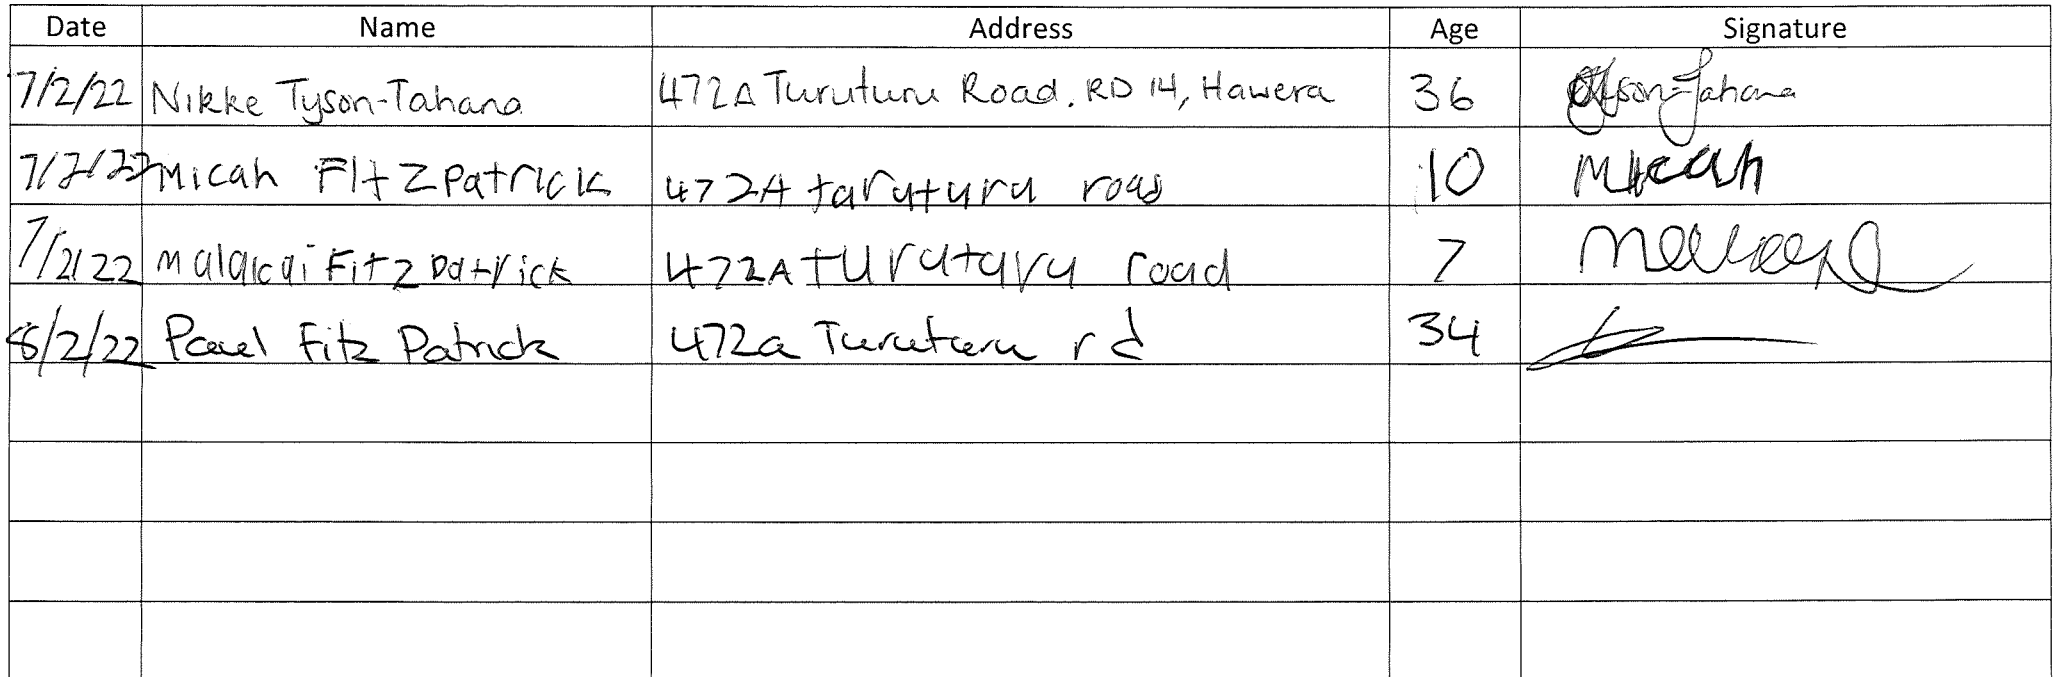 Date Name Address Age Signature
7/2/22 Nikke Tyson-Tahana 472A Turuturu Road, RD 14, Hawera 36 Tyson-Tahana
7/2/22 Micah FitzPatrick 472A taruturu road 10 Micah
7/2/22 Malakai FitzPatrick 472A turuturu road 7
8/2/22 Paul Fitz Patrick 472a Turuturu rd 34